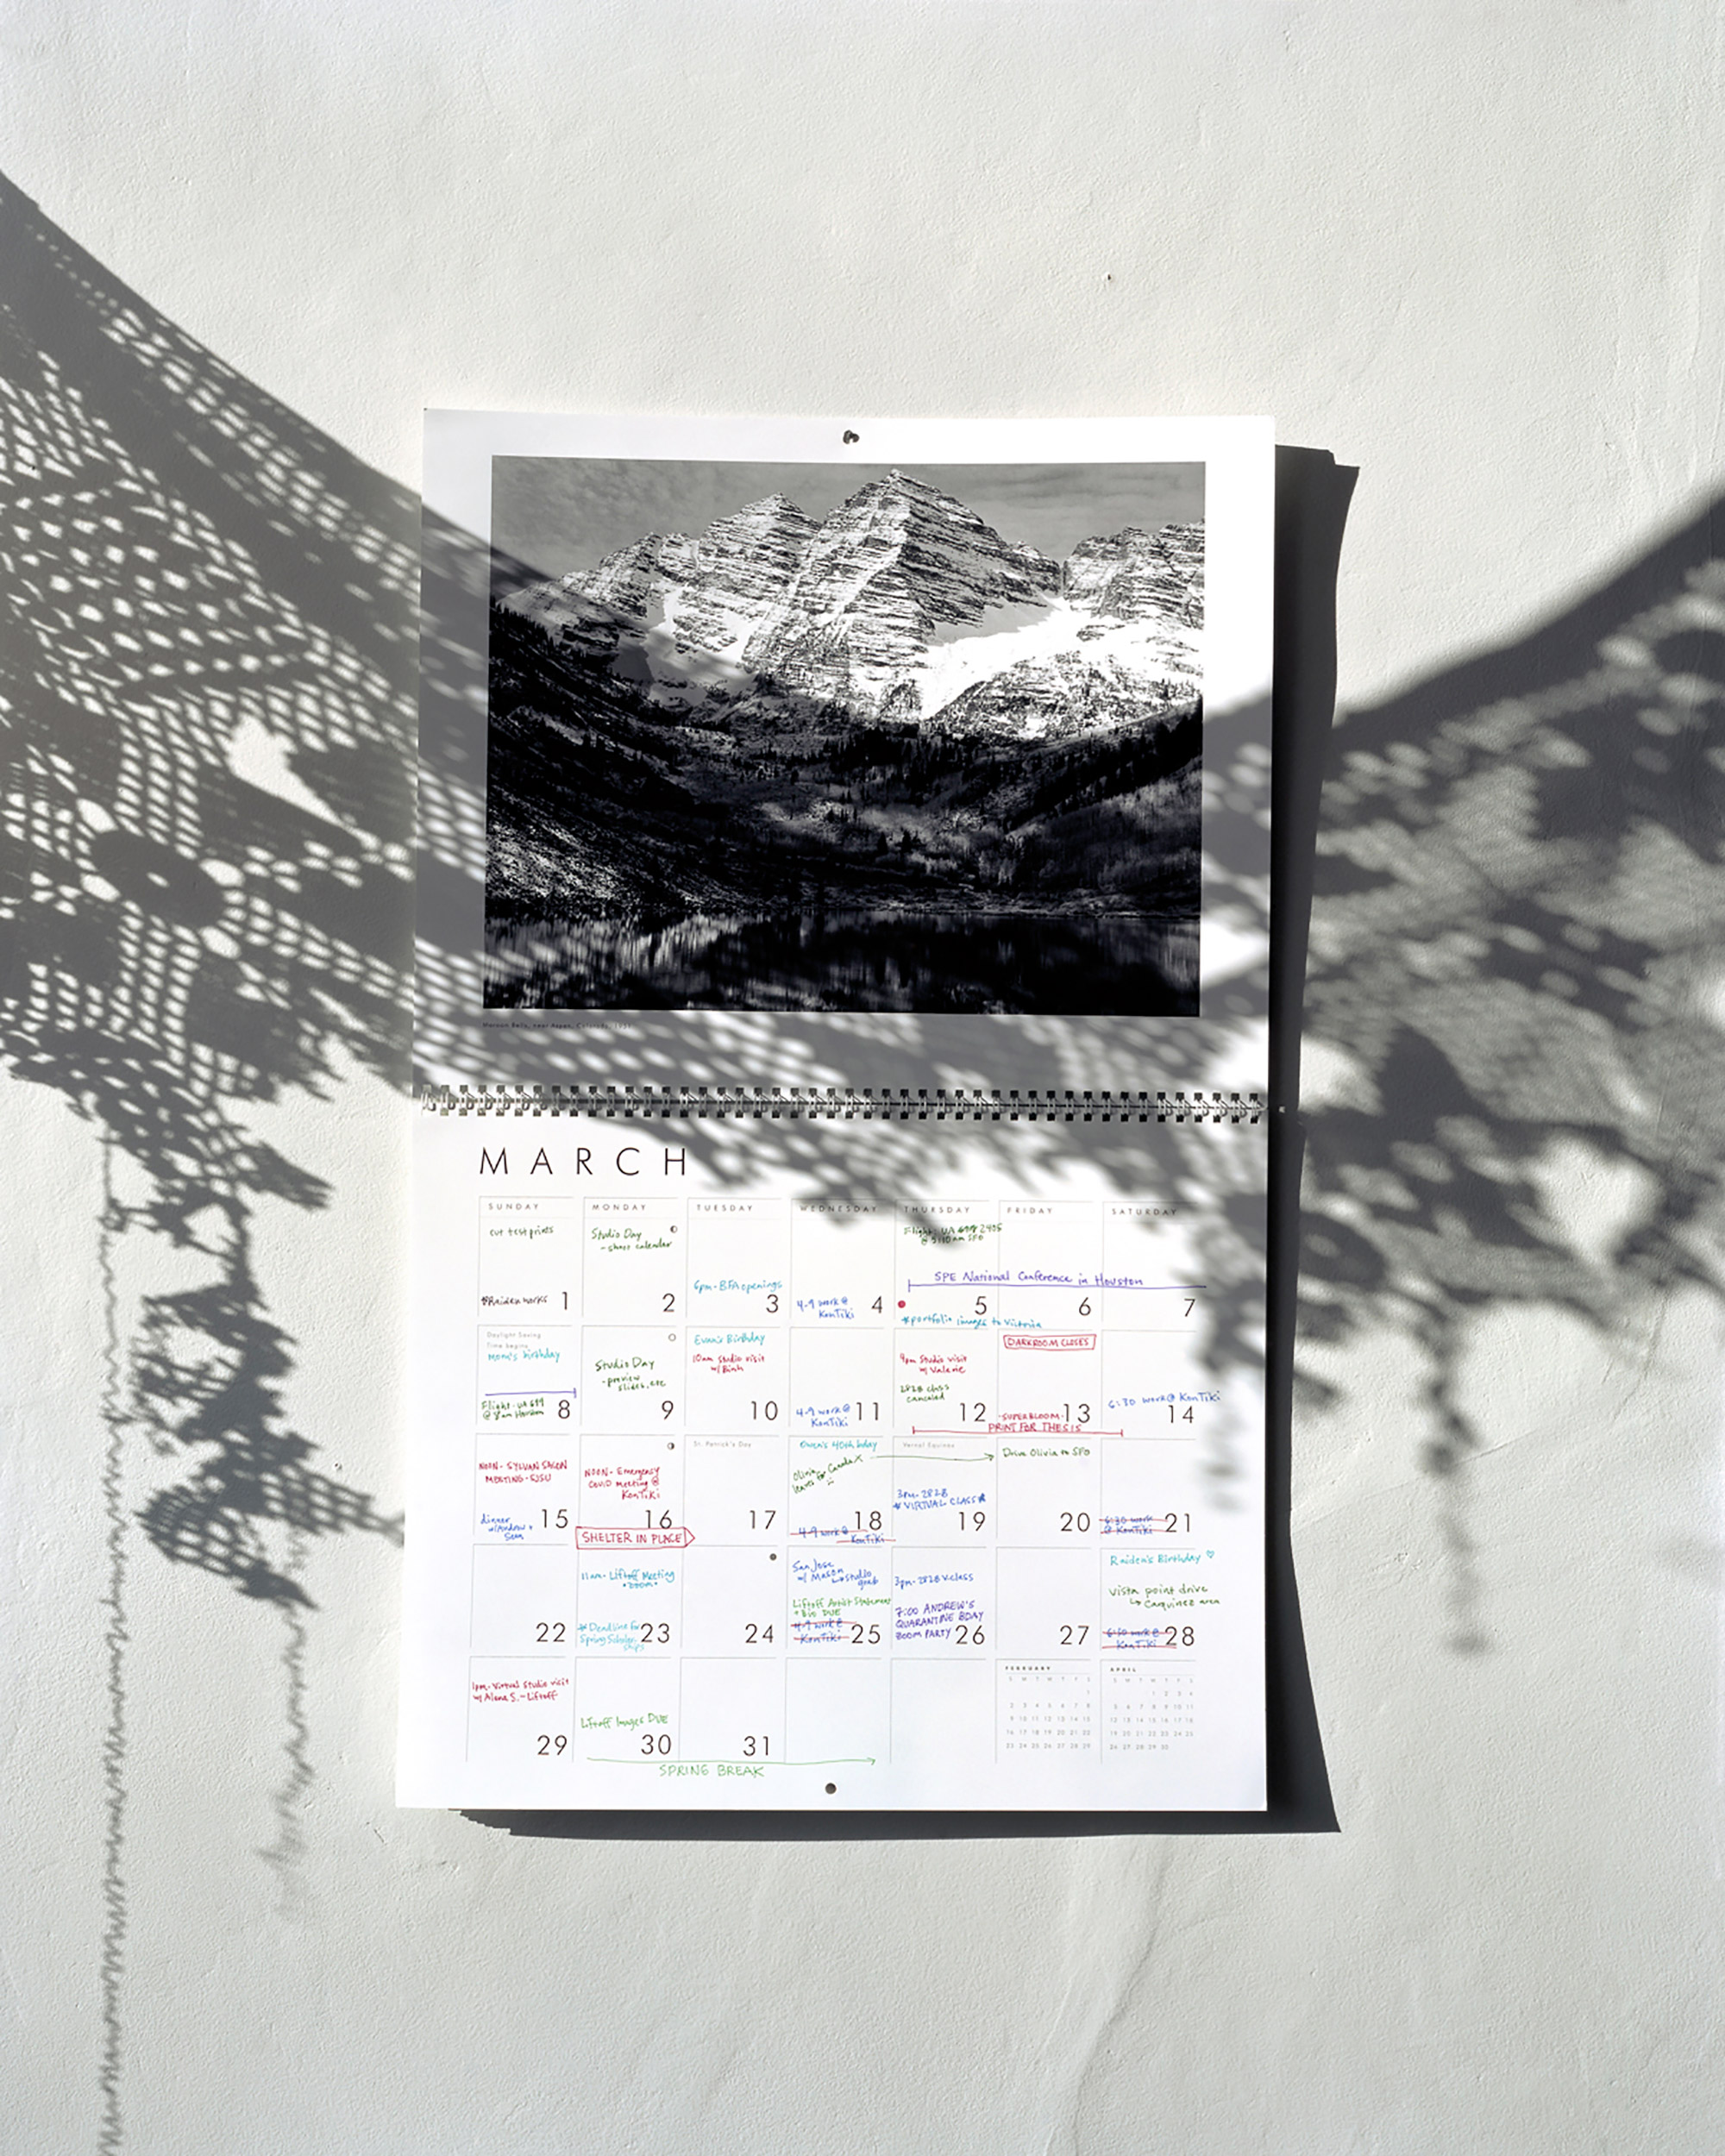 Maroon Bells, near Aspen, Colorado, 1951
MARCH
SUNDAY MONDAY TUESDAY WEDNESDAY THURSDAY FRIDAY SATURDAY
cut test prints
*Raiden works 1
Studio Day
- share calendar
2
6pm - BFA openings
3
4-9 work @
KonTiki 4
Flight: UA 2405
@ 5:10am SFO
SPE National Conference in Houston
5
*portfolio images to Victoria
6
7
Daylight Saving
Time begins
Mom's birthday
Flight - UA 699
@ 8am Houston 8
Studio Day
- preview
slides, etc
9
Evan's Birthday
10am studio visit
w/ Binh
10
4-9 work @
KonTiki 11
9pm Studio visit
w/ Valerie
282B class
canceled
12
DARKROOM CLOSES
- SUPERBLOOM - 13
PRINT FOR THESIS
6:30 work @ KonTiki
14
NOON - SYLVAN SALON
MEETING - SJSU
dinner
w/ Andrew +
Sean
15
NOON - Emergency
COVID meeting @
KonTiki
16
SHELTER IN PLACE
St. Patrick's Day
17
Owen's 40th bday
Olivia
leaves for Canada
18
4-9 work @
KonTiki
Vernal Equinox
3pm - 282B
* VIRTUAL CLASS *
19
Drive Olivia to SFO
20
6:30 work
@ KonTiki 21
22
11am - Liftoff Meeting
• zoom •
* Deadline for
Spring Scholar-
ships
23
24
San Jose
w/ Mason
studio
grab
Liftoff Artist Statement
+ Bio DUE
4-9 work @
KonTiki 25
3pm - 282B v.class
7:00 ANDREW'S
QUARANTINE BDAY
ZOOM PARTY 26
27
Raiden's Birthday ♡
Vista point drive
↳ Carquinez area
6:30 work @
KonTiki 28
1pm - Virtual Studio visit
w/ Alena S. - Liftoff
29
Liftoff Images DUE
30
31
SPRING BREAK
FEBRUARY
S M T W T F S
1
2 3 4 5 6 7 8
9 10 11 12 13 14 15
16 17 18 19 20 21 22
23 24 25 26 27 28 29
APRIL
S M T W T F S
1 2 3 4
5 6 7 8 9 10 11
12 13 14 15 16 17 18
19 20 21 22 23 24 25
26 27 28 29 30